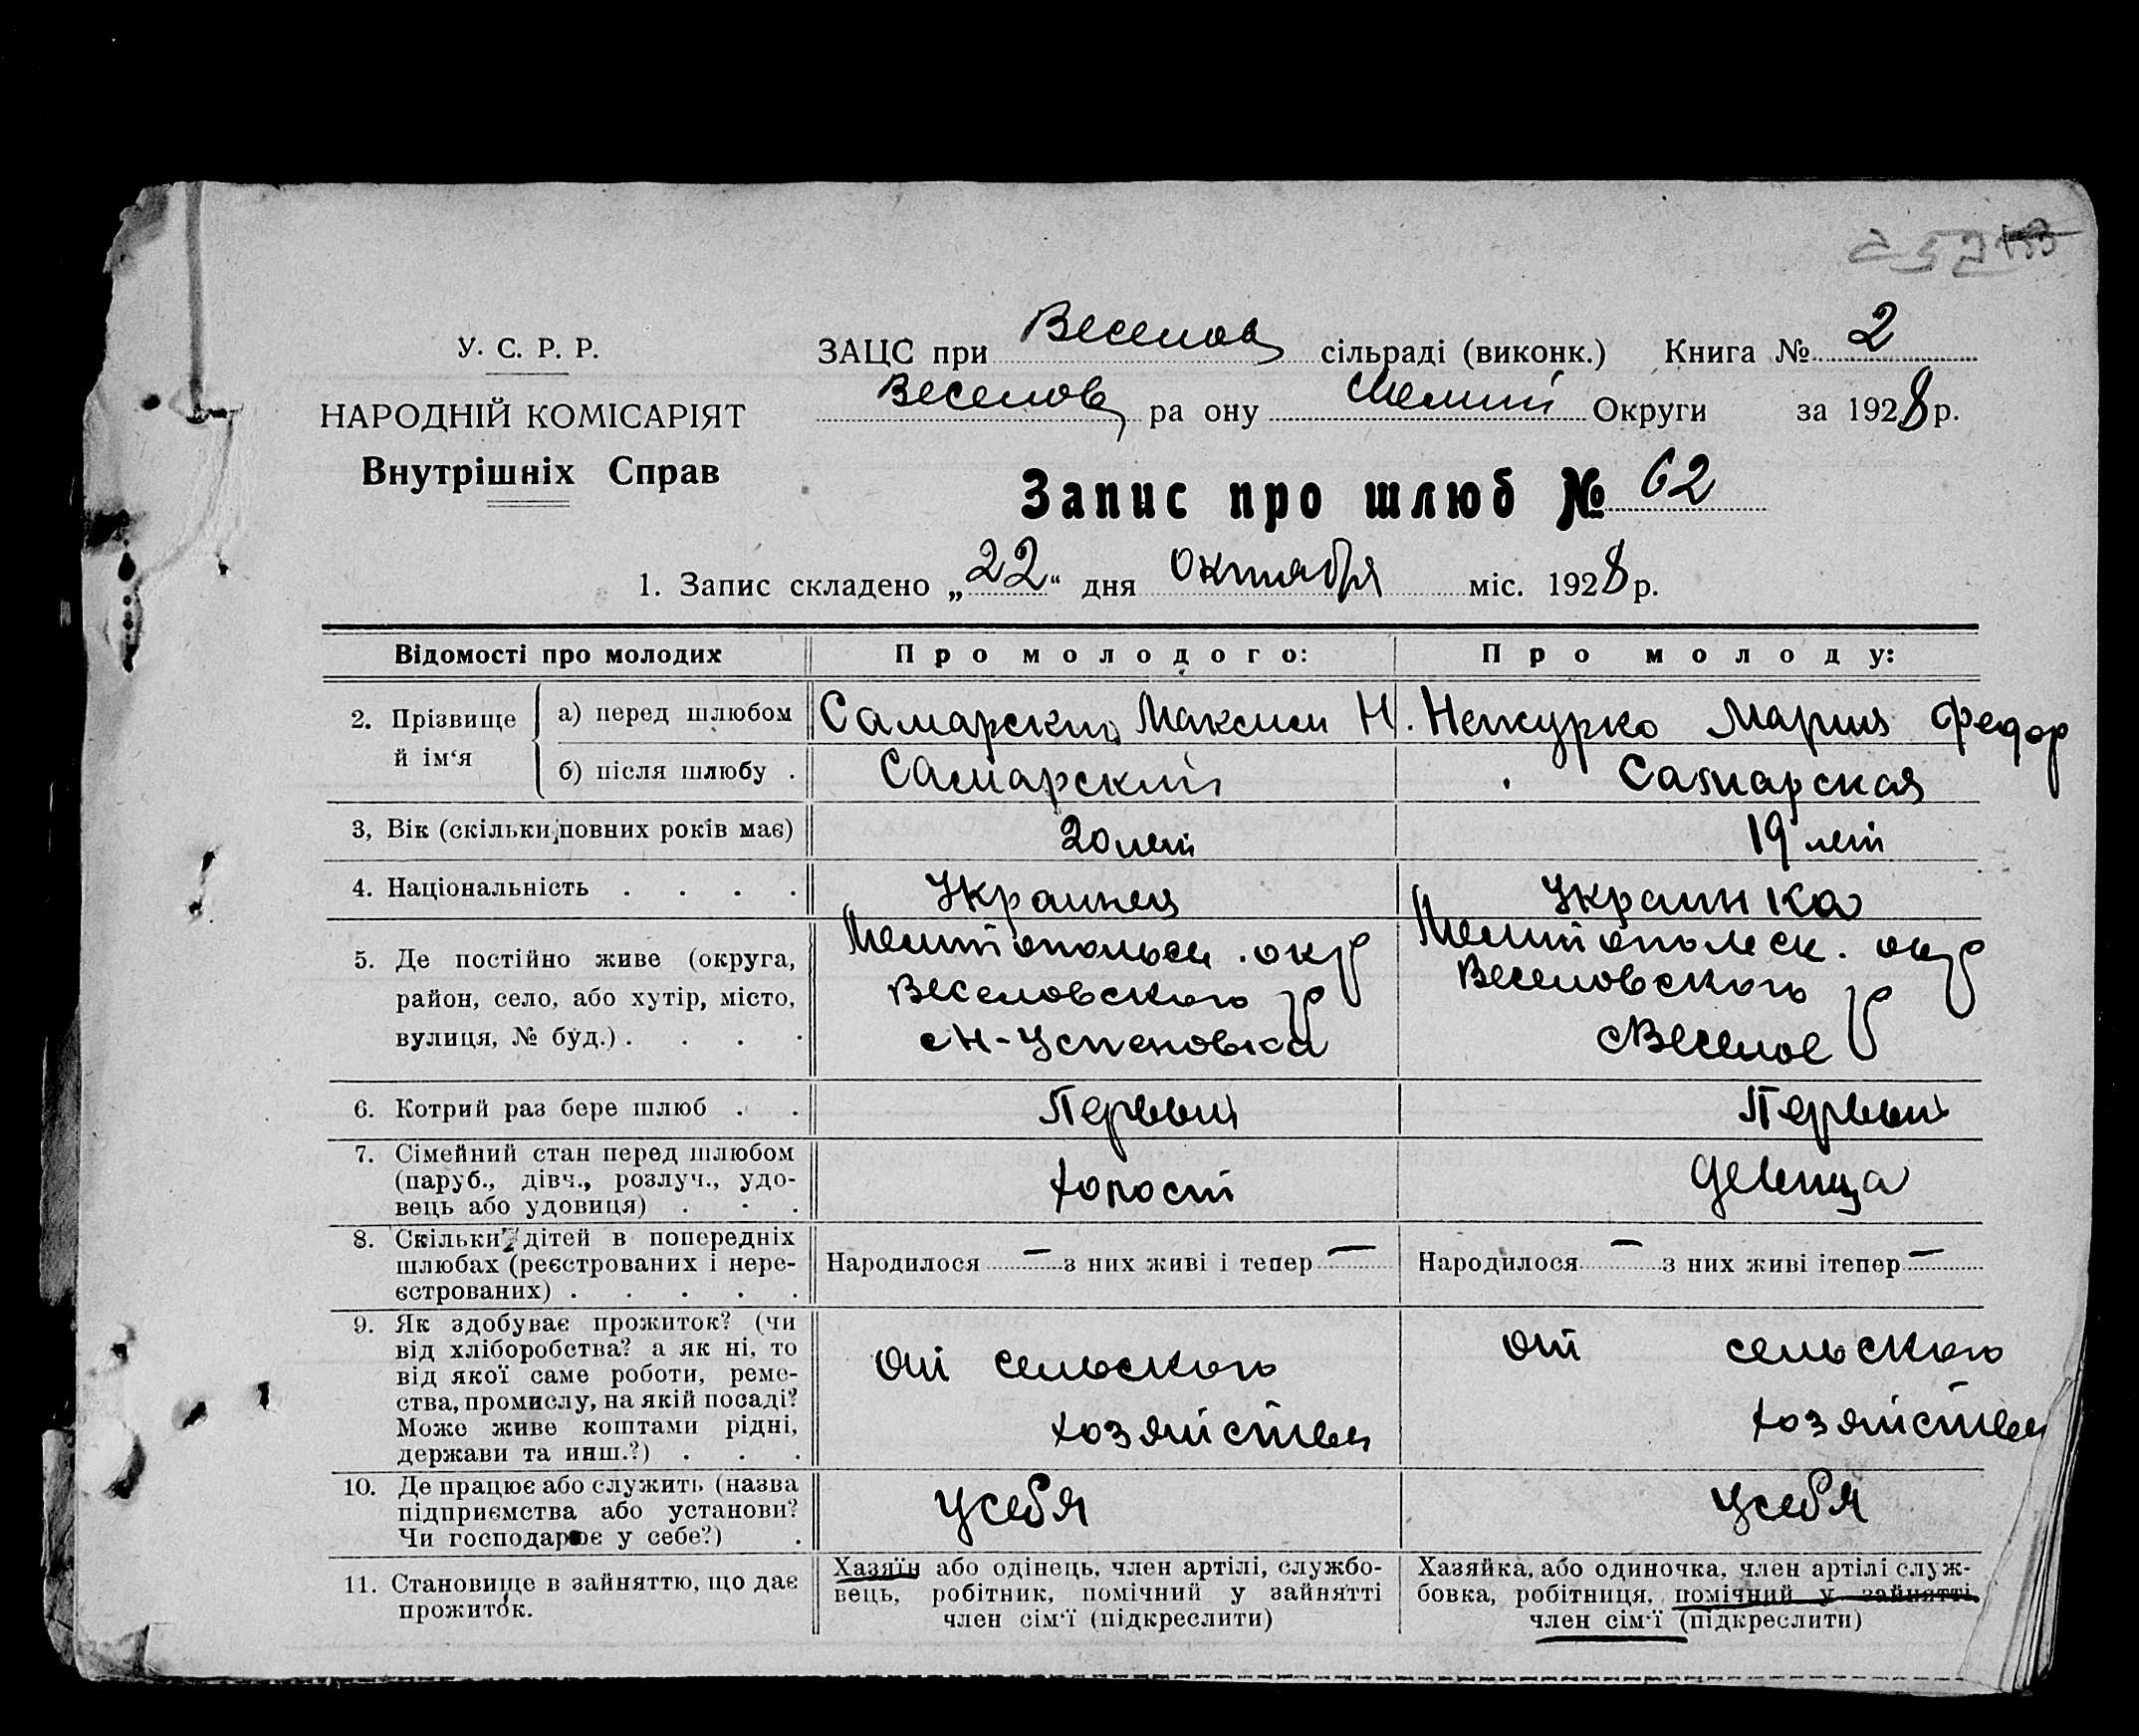 У. С. Р. Р.
НАРОДНІЙ КОМІСАРІЯТ
Внутрішніх Справ
ЗАЦС при Веселов сільраді (виконк.) Книга № 2
Веселов ра ону Мелит Округи за 1928 р.
Запис про шлюб № 62
1. Запис складено „22“ дня октября міс. 1928 р.
Відомості про молодих Про молодого: Про молоду:
2. Прізвище й ім‘я
а) перед шлюбом Самарский Максим Н. Нежурко Мария Федор
б) після шлюбу . Самарский Самарская
3, Вік (скільки повних років має) 20 лет 19 лет
4. Національність . . . . Украинец Украинка
5. Де постійно живе (округа,
район, село, або хутір, місто,
вулиця, № буд.) . . . .
Мелитопольск. окр
Веселовского р
с Н-Успеновка
Мелитополск. окр
Веселовского р
с Веселое
6. Котрий раз бере шлюб . . Первый Первый
7. Сімейний стан перед шлюбом
(паруб., дівч., розлуч., удо-
вець або удовиця) . . .
холост девица
8. Скільки дітей в попередніх
шлюбах (реєстрованих і нере-
єстрованих) . . . . .
Народилося — з них живі і тепер — Народилося — з них живі ітепер —
9. Як здобуває прожиток? (чи
від хліборобства? а як ні, то
від якої саме роботи, реме-
ства, промислу, на якій посаді?
Може живе коштами рідні,
держави та инш.?) . . .
от сельского
хозяйства
от сельского
хозяйства
10. Де працює або служить (назва
підприємства або установи?
Чи господарює у себе?) .
у себя у себя
11. Становище в зайняттю, що дає
прожиток.
Хазяїн або одінець, член артілі, службо-
вець, робітник, помічний у зайнятті
член сім‘ї (підкреслити)
Хазяйка, або одиночка, член артілі служ-
бовка, робітниця, помічний у зайнятті
член сім‘ї (підкреслити)